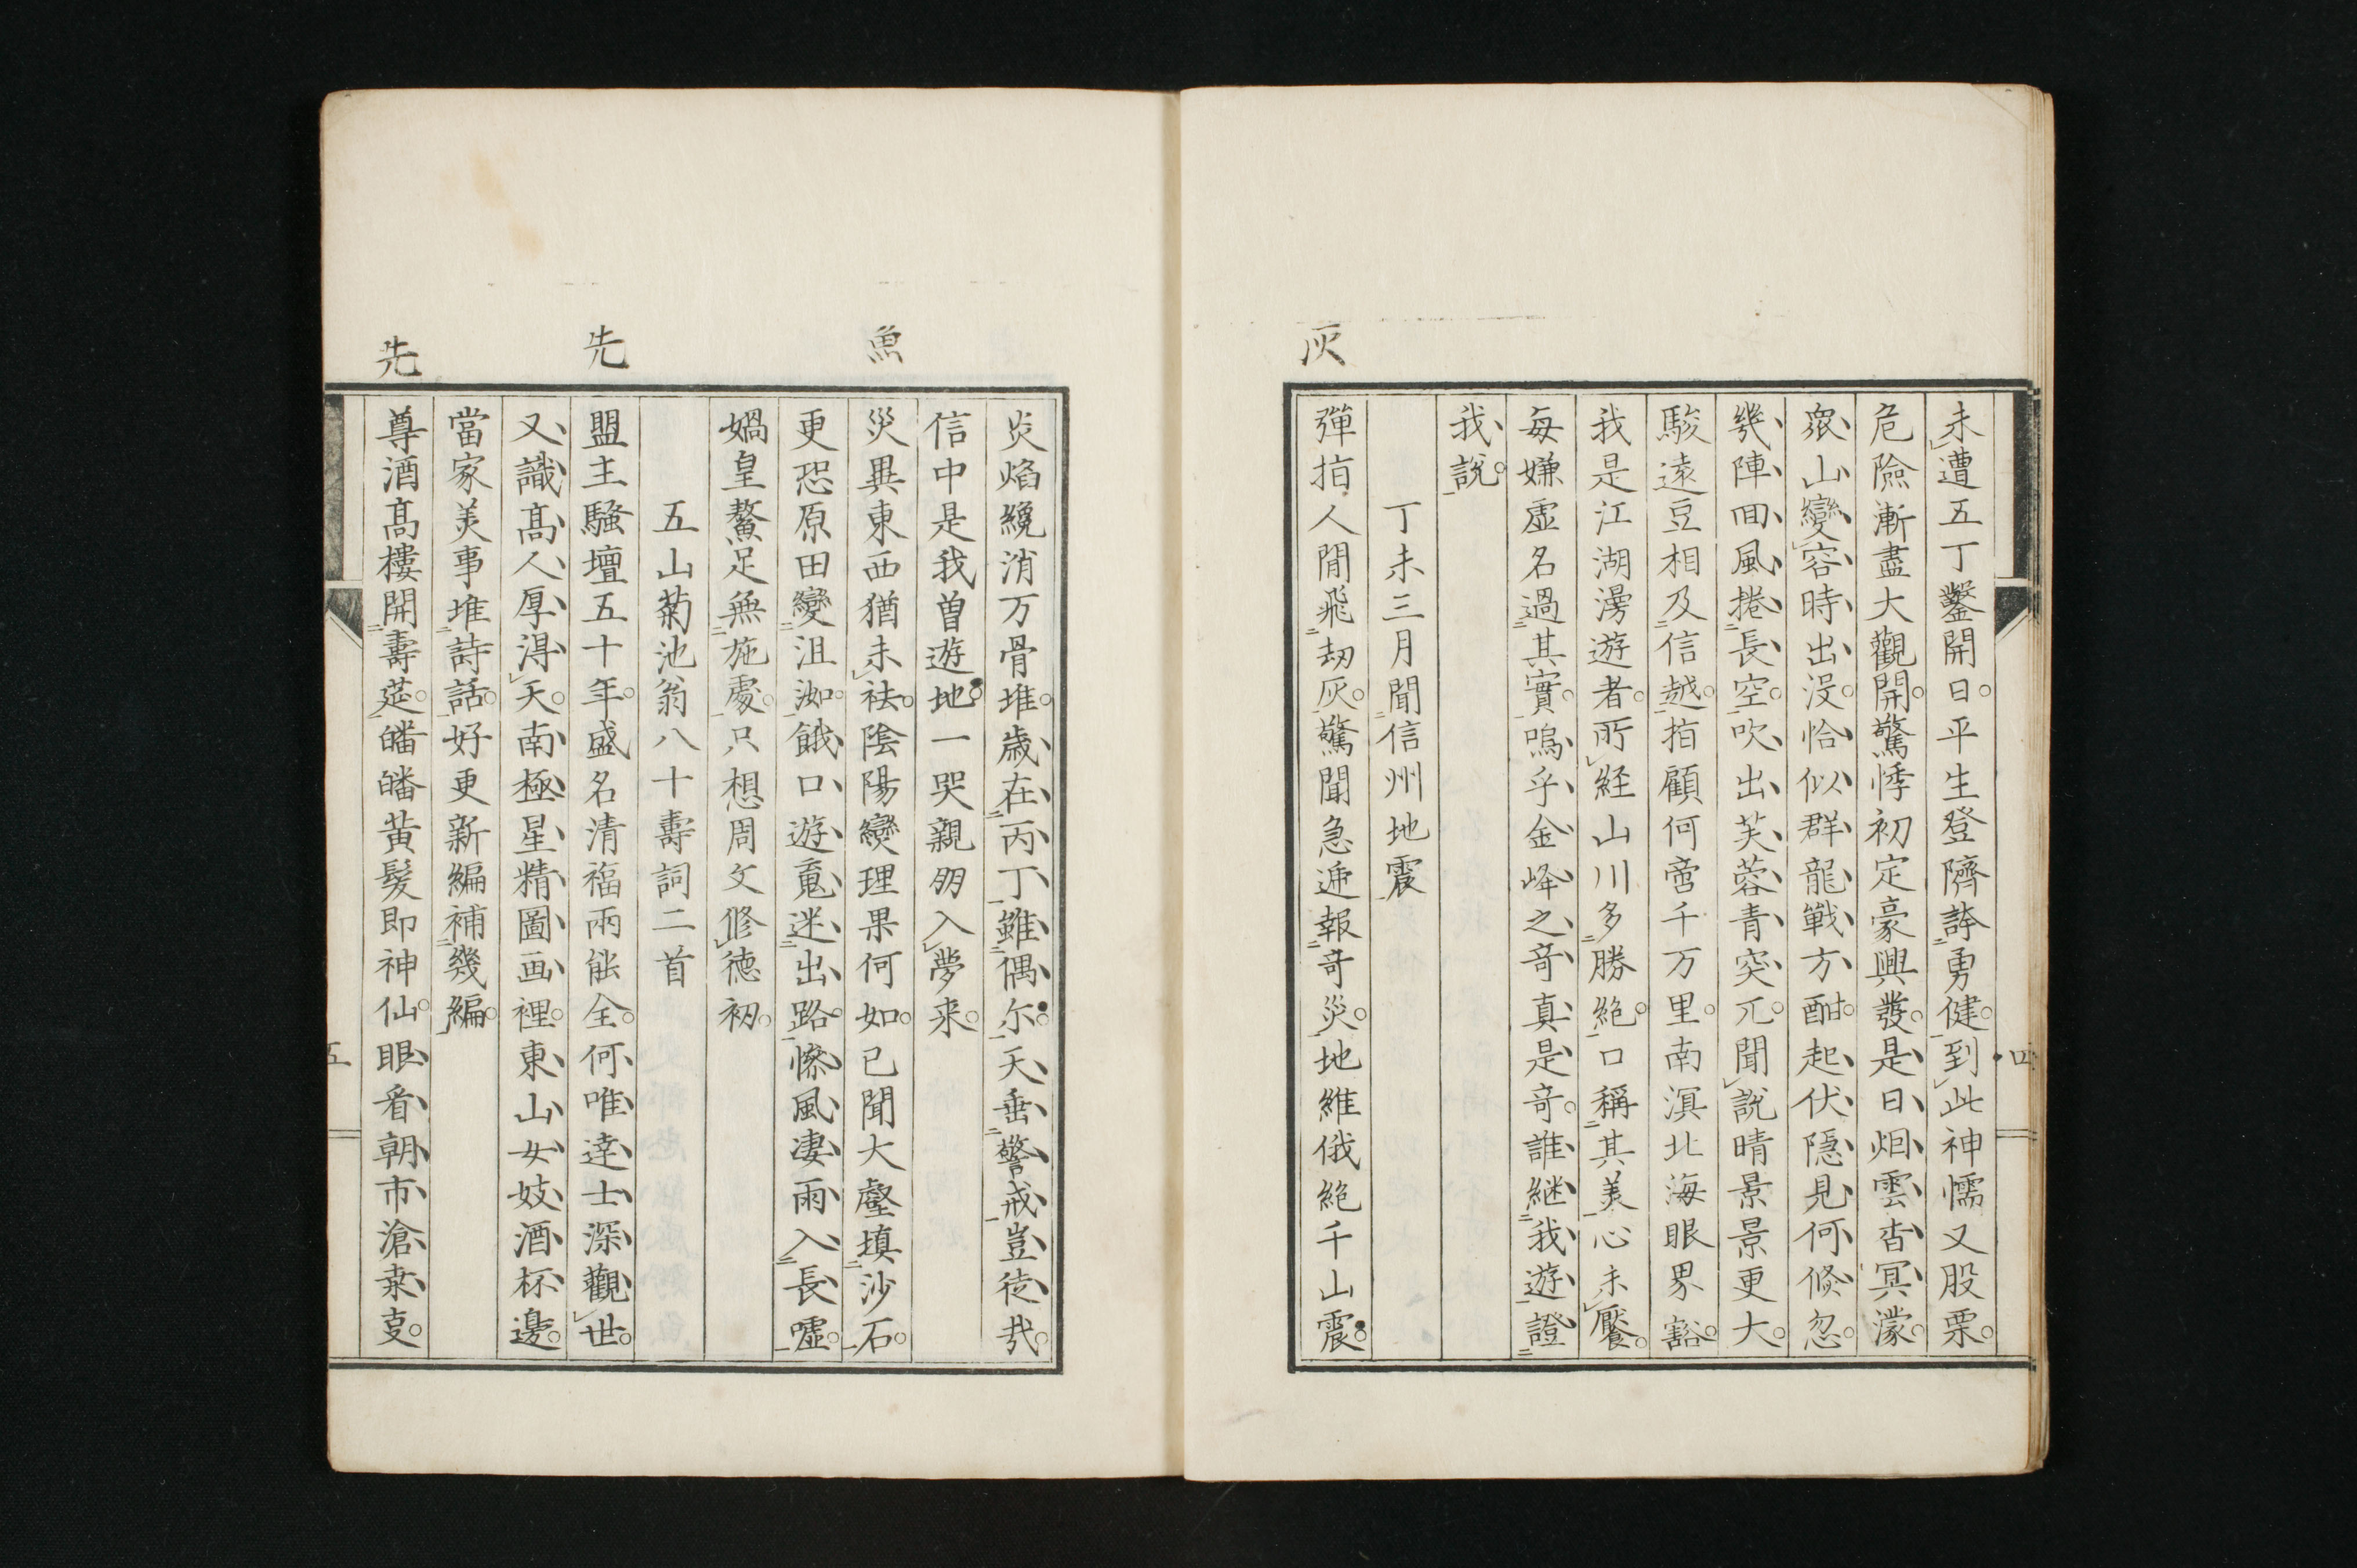 四
未遭五丁鑿開日平生登隮誇勇健到此神懦又股栗
危險漸盡大觀開驚悸初定豪興發是日烟雲杳冥濛
衆山變容時出沒恰似群龍戰方酣起伏隱見何倏忽
幾陣回風捲長空吹出芙蓉青突兀聞說晴景景更大
駿遠豆相及信越指顧何啻千万里南溟北海眼界豁
我是江湖漫遊者所経山川多勝絕口稱其美心未饜
每嫌虛名過其實嗚乎金峰之奇真是奇誰継我遊證
我說
丁未三月聞信州地震
灰
彈指人間飛劫灰驚聞急遞報奇災地維俄絕千山震
炎焰纔消万骨堆歳在丙丁雖偶尓天垂警戒豈徒哉
信中是我曾遊地一哭親朋入夢来
魚
災異東西猶未祛陰陽變理果何如已聞大壑填沙石
更恐原田變沮洳餓口遊魂迷出路慘風凄雨入長嘘
媧皇鰲足無施處只想周文修德初
五山菊池翁八十壽詞二首
先
盟主騷壇五十年盛名清福兩能全何唯達士深觀世
又識高人厚得天南極星精圖画裡東山女妓酒杯邊
當家美事堆詩話好更新編補幾編
先
尊酒高樓開壽莚皤皤黃髮即神仙眼看朝市滄桒변
五